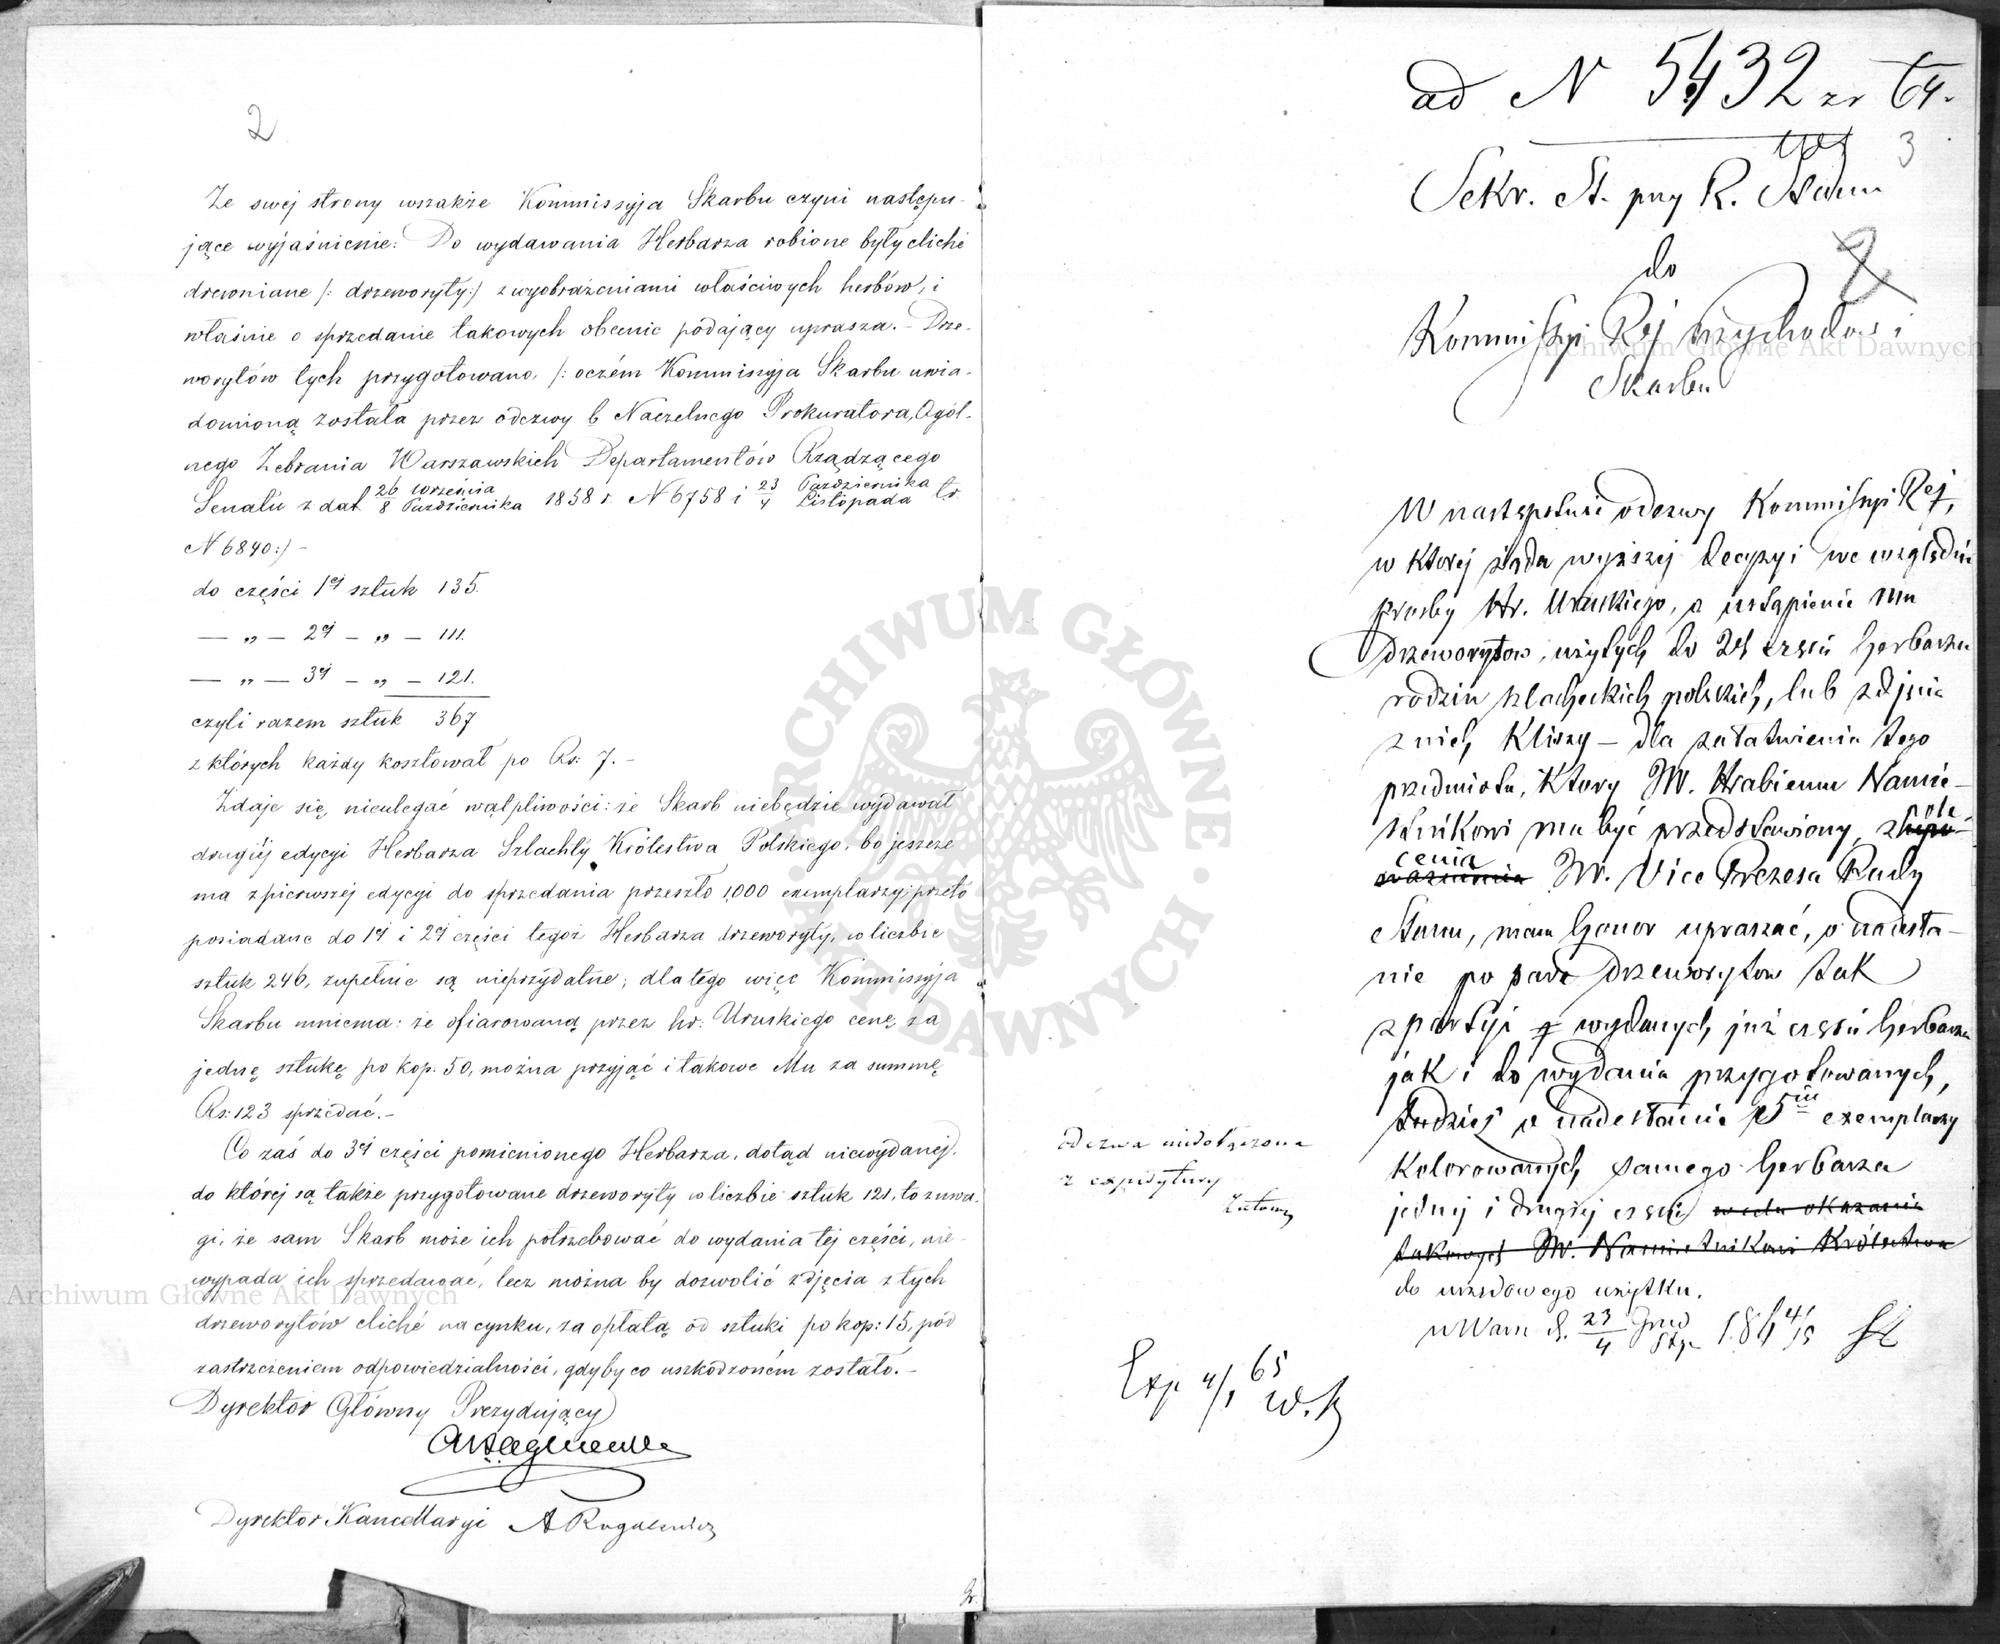 2
Ze swej strony wszakże Kommissyja Skarbu czyni następu-
jące wyjaśnienie: Do wydawania Herbarza robione były cliché
drewniane /: drzeworyty:/ z wyobrażeniami właściwych herbów, i
właśnie o sprzedanie takowych obecnie podający uprasza. – Drze-
worytów tych przygotowano, /: oczém Kommissyja Skarbu uwia-
domioną została przez odezwy b Naczelnego Prokuratora, Ogól-
nego Zebrania Warszawskich Departamentów Rządzącego
Senatu z dat 26 Września / 8 Października 1858 r. N 6758 i 23 Października / 4 Listopada tr.
N 6840:/ –
do części 1ej sztuk 135.
— „ — 2ej — „ — 111.
— „ — 3ej — „ — 121.
czyli razem sztuk 367
z których każdy kosztował po Rs: 7. –
Zdaje się nieulegać wątpliwości: że Skarb niebędzie wydawał
drugiéj edycyi Herbarza Szlachty Królestwa Polskiego, bo jeszcze
ma z pierwszej edycyi do sprzedania przeszło 1,000 exemplarzy; przeto
posiadane do 1ej i 2ej części tegoż Herbarza drzeworyty, w liczbie
sztuk 246, zupełnie są nieprzydatne; dla tego więc Kommissyja
Skarbu mniema: że ofiarowaną przez hr: Uruskiego cenę za
jednę sztukę po kop: 50, można przyjąć i takowe Mu za summę
Rs: 123 sprzedać. –
Co zaś do 3ej części pomienionego Herbarza, dotąd niewydanej,
do której są także przygotowane drzeworyty w liczbie sztuk 121, to zuwa-
gi, że sam Skarb może ich potrzebować do wydania tej części, nie-
wypada ich sprzedawać, lecz można by dozwolić zdjęcia z tych
drzeworytów cliché na cynku, za opłatą od sztuki po kop: 15, pod
zastrzeżeniem odpowiedzialności, gdyby co uszkodzoném zostało. –
Dyrektor Główny Prezydujący
Dyrektor Kancellaryi A Rogalewicz
ad N 5432 zr 64.
3
Sekr. St. przy R. Stanu
do
2
Kommissyi Rzj Przychodów i
Skarbu
W następstwie odezwy Kommissyi Rzj,
w której żąda wyższej decyzyi we względzie
prośby Hr. Uruskiego, o ustąpienie mu
drzeworytow, użytych do 2ch części herbarza
rodzin szlacheckich polskich, lub zdjęcie
z nich kliszy – dla załatwienia tego
przedmiotu, który JW. Hrabiemu Namie-
stnikowi ma być przedstawiony, z pole
cenia JW. Vice Prezesa Rady
Stanu, mam honor upraszać, o nadesła-
nie po parę drzeworytow tak
z partyi wydanych już części herbarza
jak i do wydania przygotowanych,
tudzież o nadesłanie exemplarzy
kolorowanych samego herbarza
jednej i drugiej części w celu okazania
takowych JW. Namiestnikowi Królestwa
do urzędowego użytku.
w Warsz d. 23 Grud / 4 Stycz 1864/5
odezwa niedołączona
z expedytury
Exp 4/1 65
Archiwum Główne Akt Dawnych
Archiwum Główne Akt Dawnych
ARCHIWUM GŁÓWNE AKT DAWNYCH